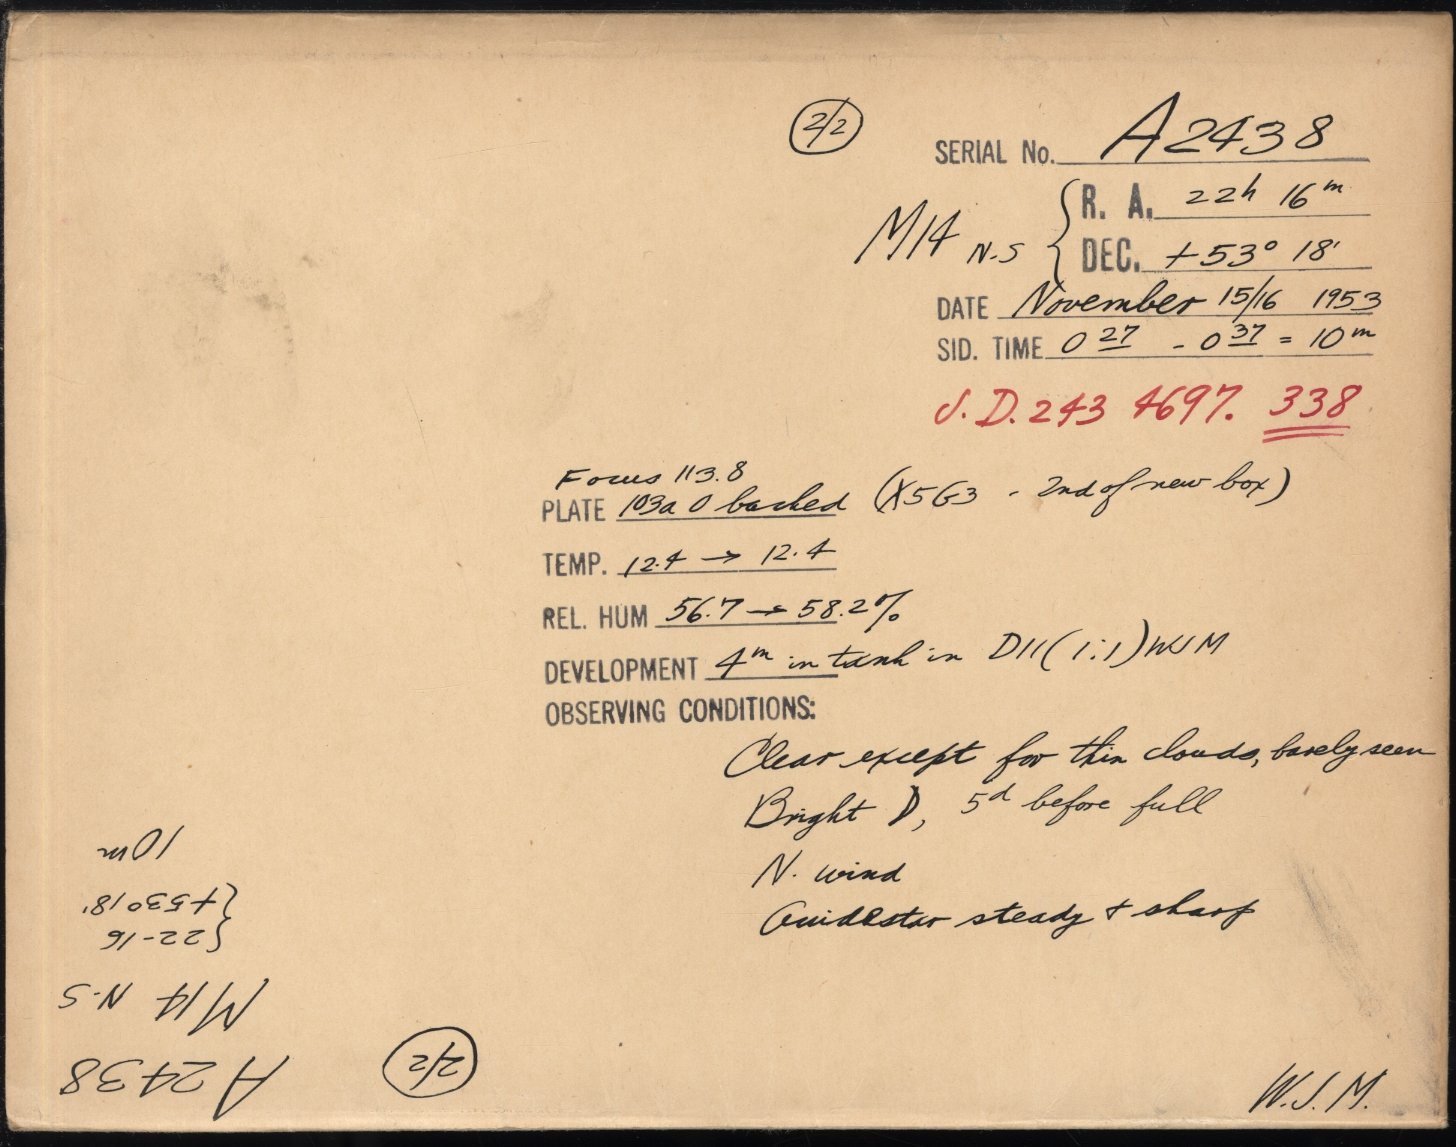 2/2
SERIAL No. A2438
R. A. 22h 16m
M14 N-S
DEC. +53° 18'
DATE November 15/16 1953
SID. TIME 0 27 - 0 37 = 10m
J.D. 243 4697. 338
Focus 113.8
PLATE 103a O backed (X5G3 - 2nd of new box)
TEMP. 12.4 → 12.4
REL. HUM 56.7 → 58.2%
DEVELOPMENT 4m in tank in D11 (1:1) WJM
OBSERVING CONDITIONS:
Clear except for thin clouds, barely seen
Bright D, 5d before full
N. wind
Guidestar steady + sharp
W.J.M.
A2438
2/2
M14 N-S
22-16
+53° 18'
10m